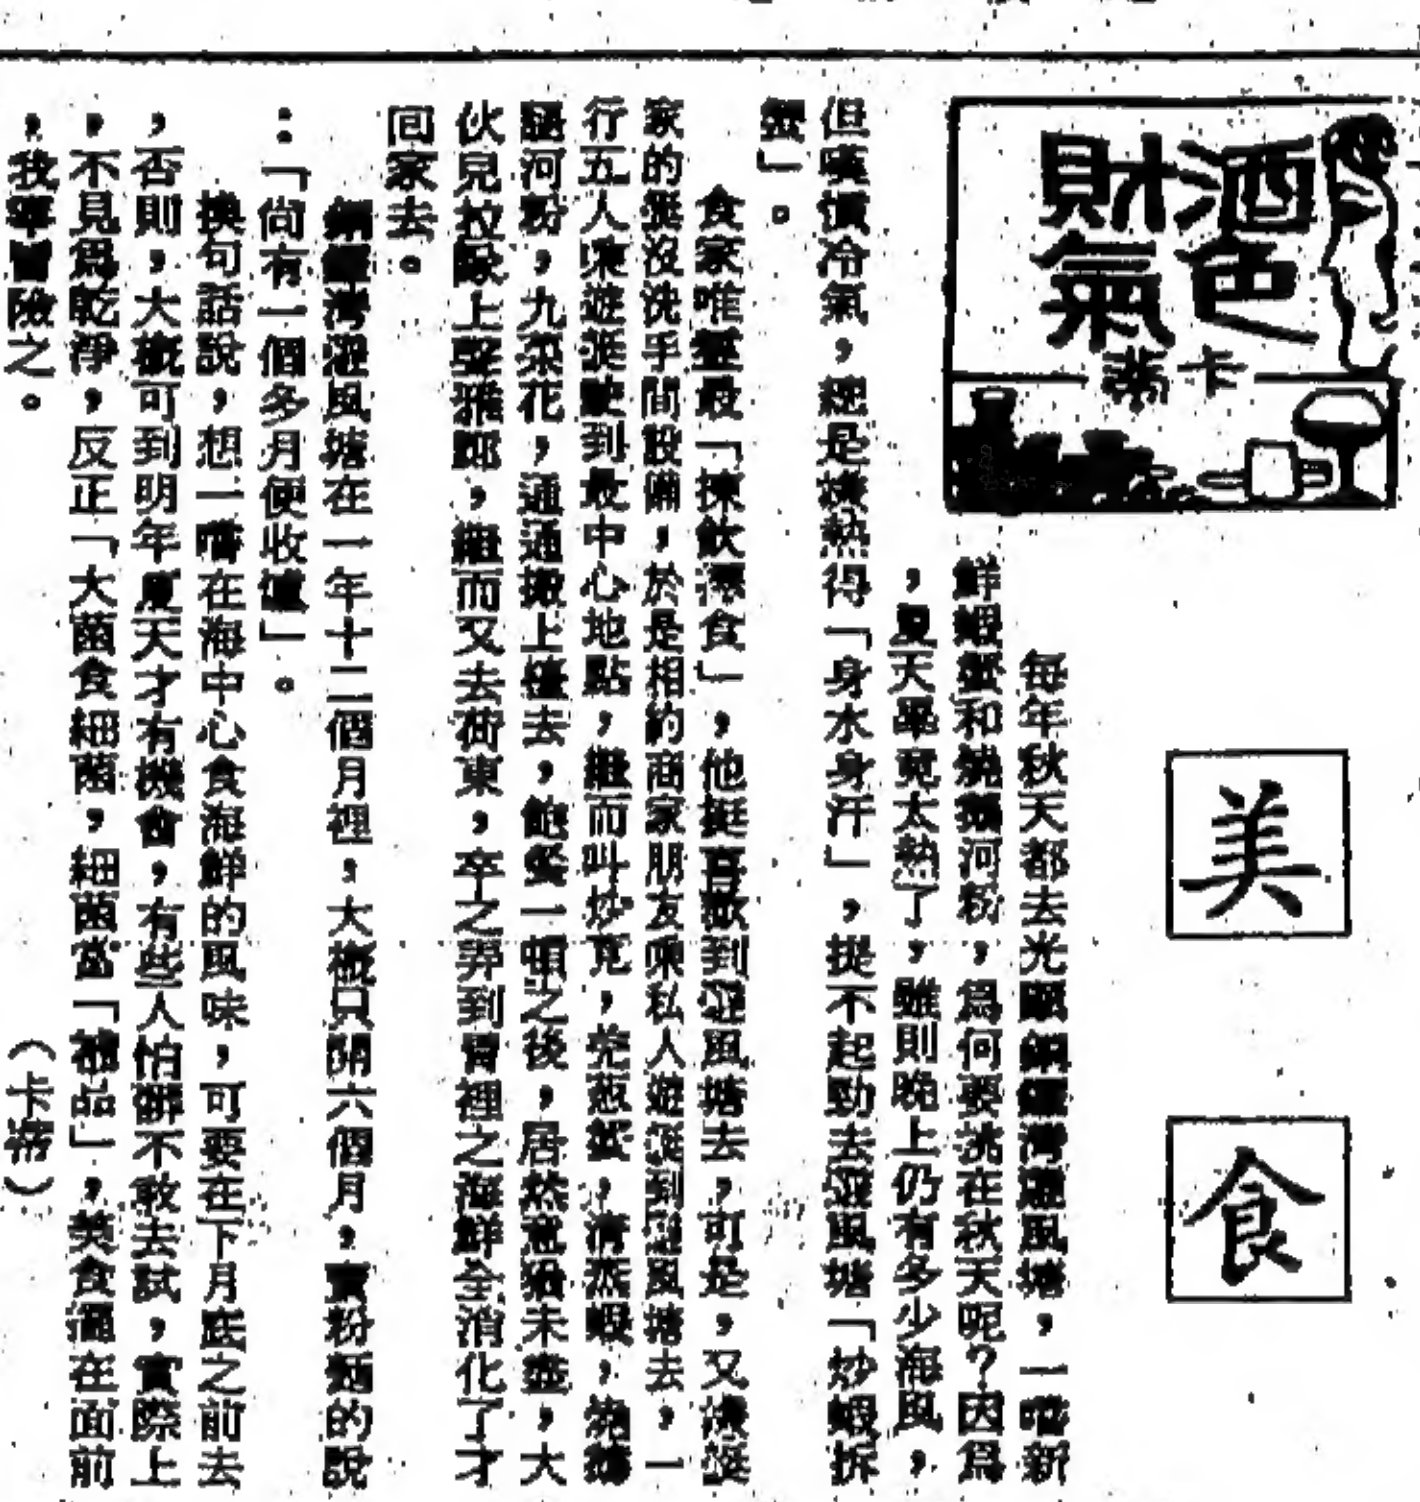 酒色
財氣
卡蒂
美食
每年秋天都去光顧銅鑼灣避風塘，一嚐新
鮮蝦蟹和燒鵝河粉，爲何要挑在秋天呢？因爲
，夏天畢竟太熱了，雖則晚上仍有多少海風，
但嘆慣冷氣，總是燠熱得「身水身汗」，提不起勁去避風塘「炒蝦拆
蟹」。
食家唯靈最「揀飲擇食」，他挺喜歡到避風塘去，可是，又嫌艇
家的艇沒洗手間設備，於是相約商家朋友乘私人遊艇到避風塘去，一
行五人乘遊艇駛到最中心地點，繼而叫炒蜆，羌葱蟹，清蒸蝦，燒鵝
腿河粉，九菜花，通通搬上檯去，飽餐一頓之後，居然意猶未盡，大
伙兒拉隊上聖雅郎，繼而又去荷東，卒之弄到胃裡之海鮮全消化了才
囘家去。
銅鑼灣避風塘在一年十二個月裡，大概只開六個月，賣粉麵的說
：「尚有一個多月便收爐」。
換句話說，想一嚐在海中心食海鮮的風味，可要在下月底之前去
，否則，大概可到明年夏天才有機會，有些人怕髒不敢去試，實際上
，不見爲乾淨，反正「大菌食細菌，細菌當「補品」，美食擺在面前
，我寧冒險之。
（卡蒂）